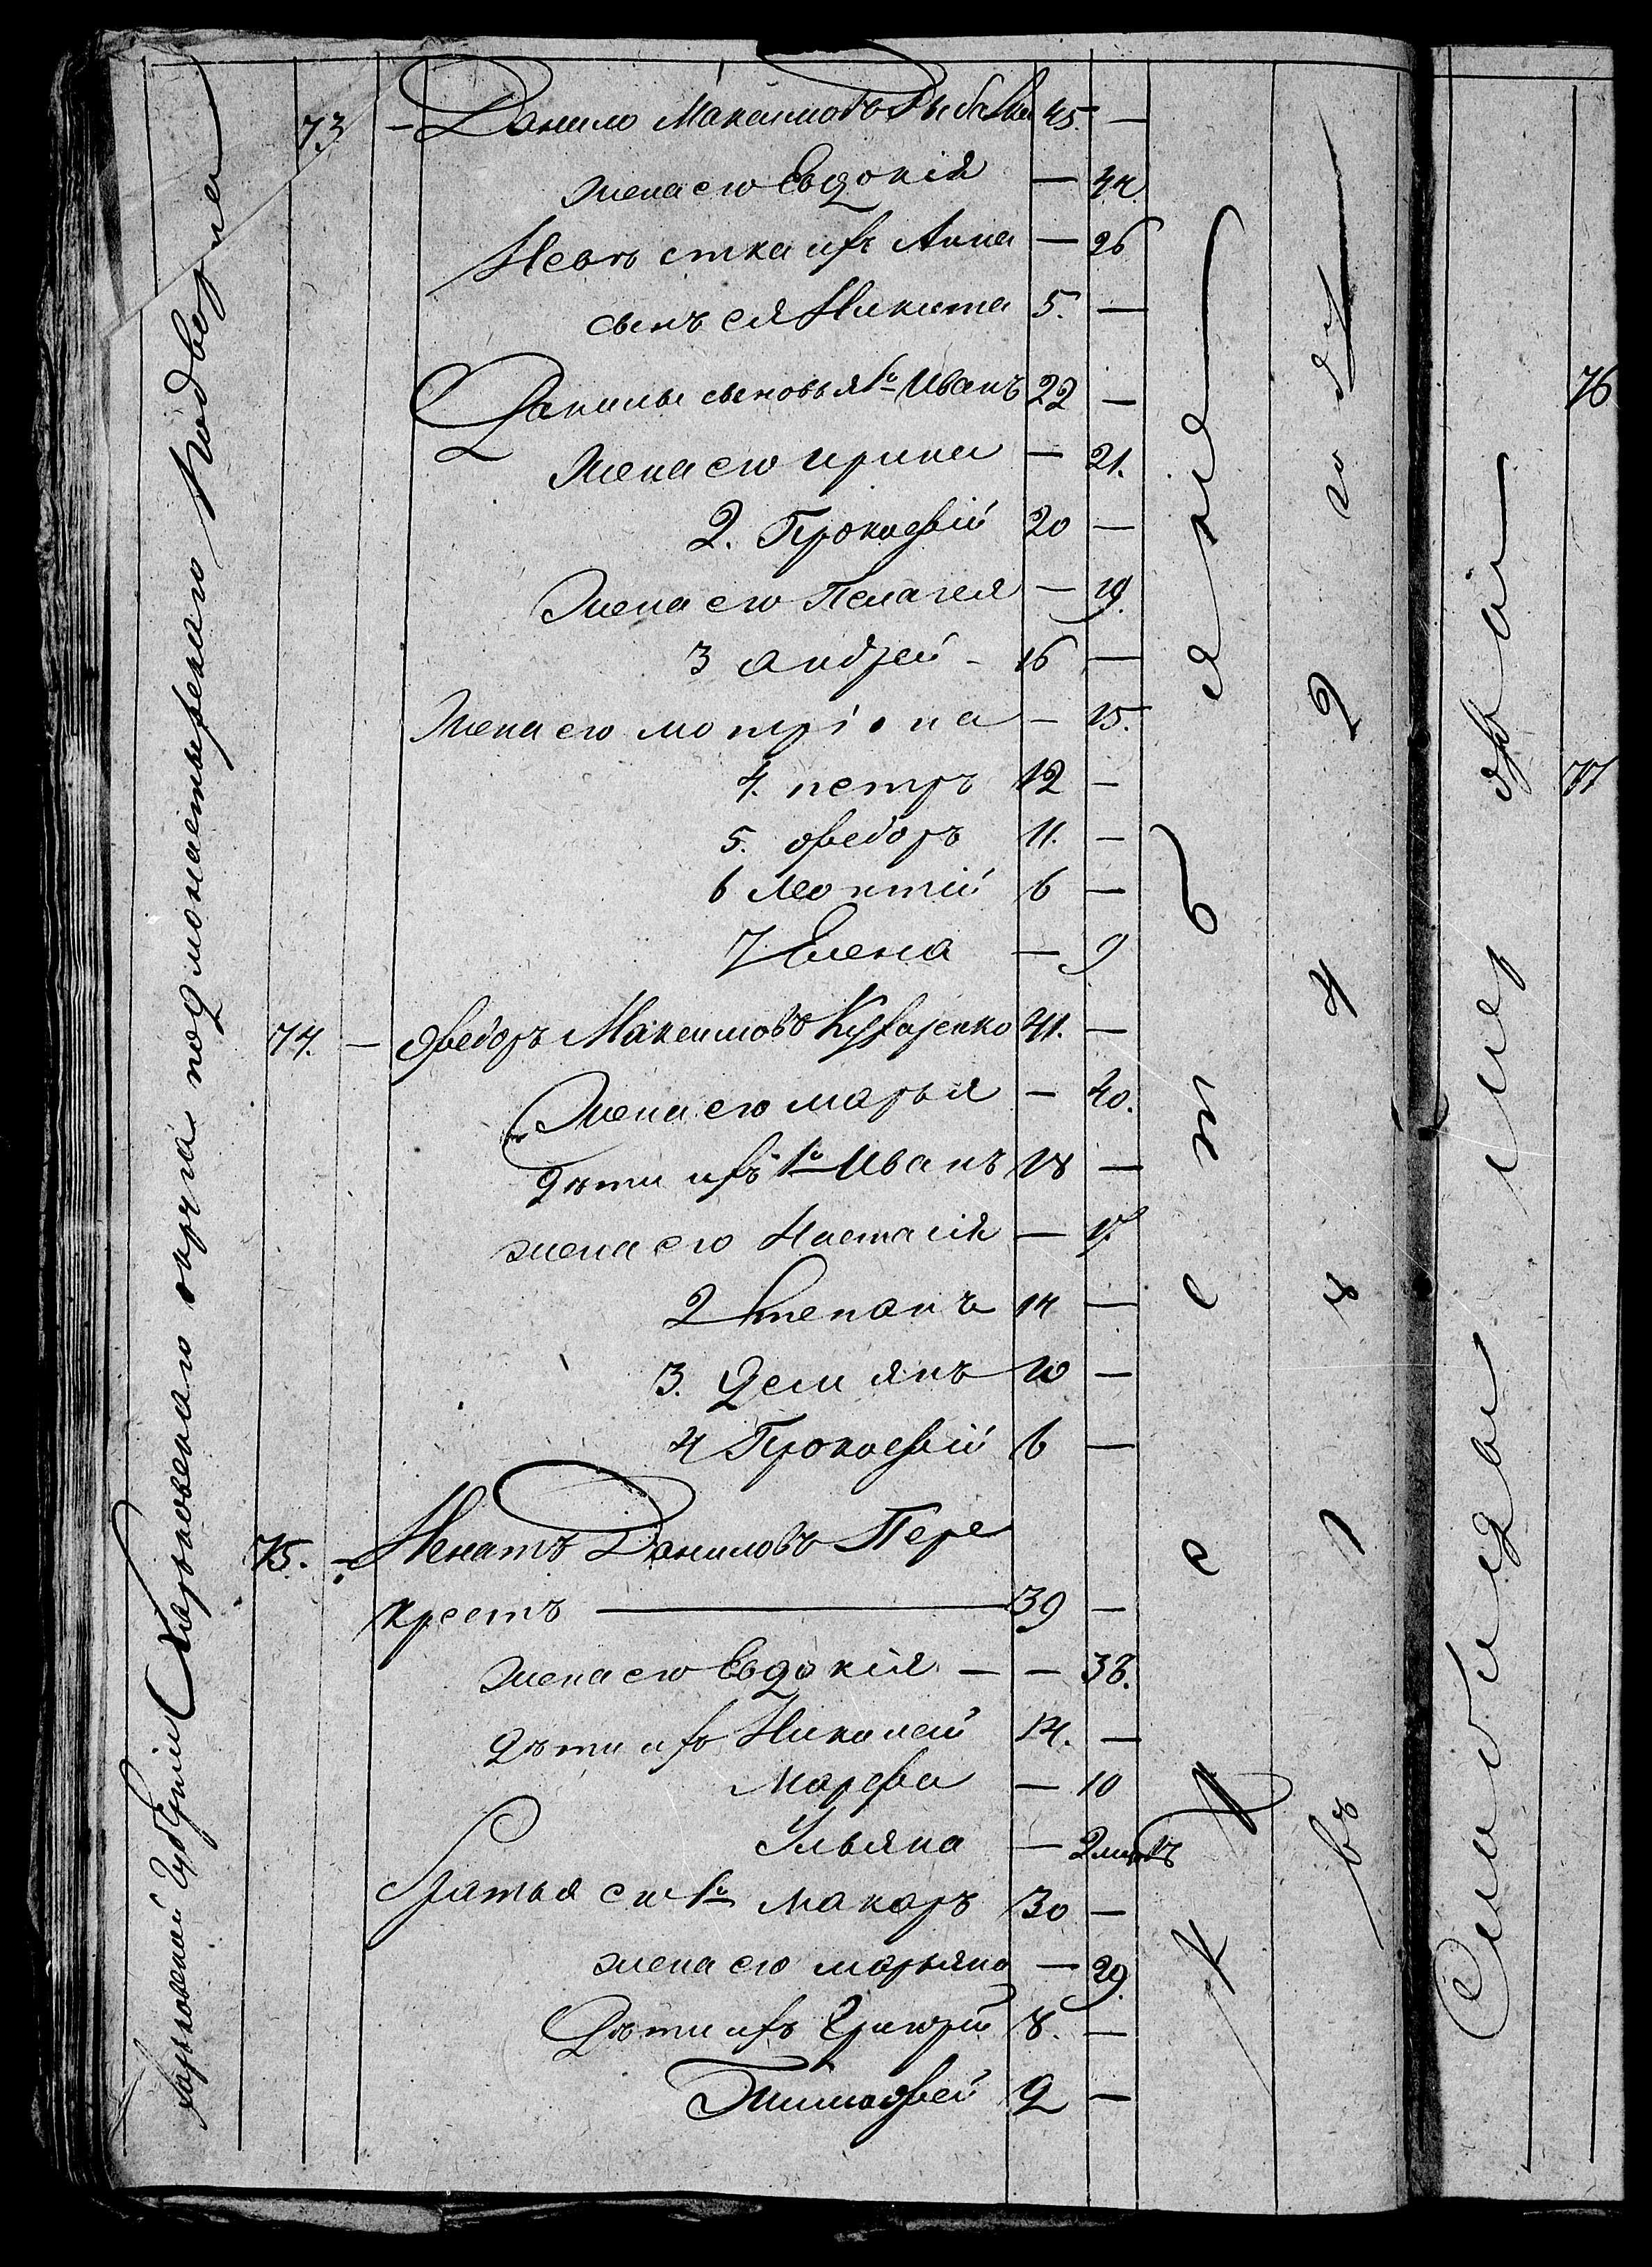 Харьковской Губернiи Харьковскаго округа подмонастырскаго Кодвори
73 — Данило Максимовъ Рыбалка 45. —
жена его Евдокiя — 44
Невѣстка ихъ Анна — 26
сынъ ея Никита 5. —
Данилы сыновья 1й Иванъ 22 —
жена его ирина — 21.
2. Прокофiй 20 —
Жена его Пелагея — 19.
3 андрей - 16 —
Жена его мотрiона — 15.
4. петръ 12 —
5. ѳедоръ 11. —
6 леонтiй 6 —
7 Елена — 9
74. — Ѳедоръ Максимовъ 41. —
Жена его марья — 40.
дѣти ихъ 1й Иванъ 18 —
жена его Настасiя — 17
2 Степанъ 14 —
3. Демянъ 10 —
4 Прокофiй 6 —
75. — Игнатъ Даниловъ Пере
крестъ — 39 —
жена его Евдокiя — — 38.
дѣти ихъ Николай 14. —
Марѳа — 10
Ульяна — 2 мѣсъ
Братья его 1й макаръ 30 —
жена его марьяна — 29.
Дѣти ихъ Григорiй 8. —
Тимоѳей 2 —
крестьяне
въ 1842 году
76
77
Слободы